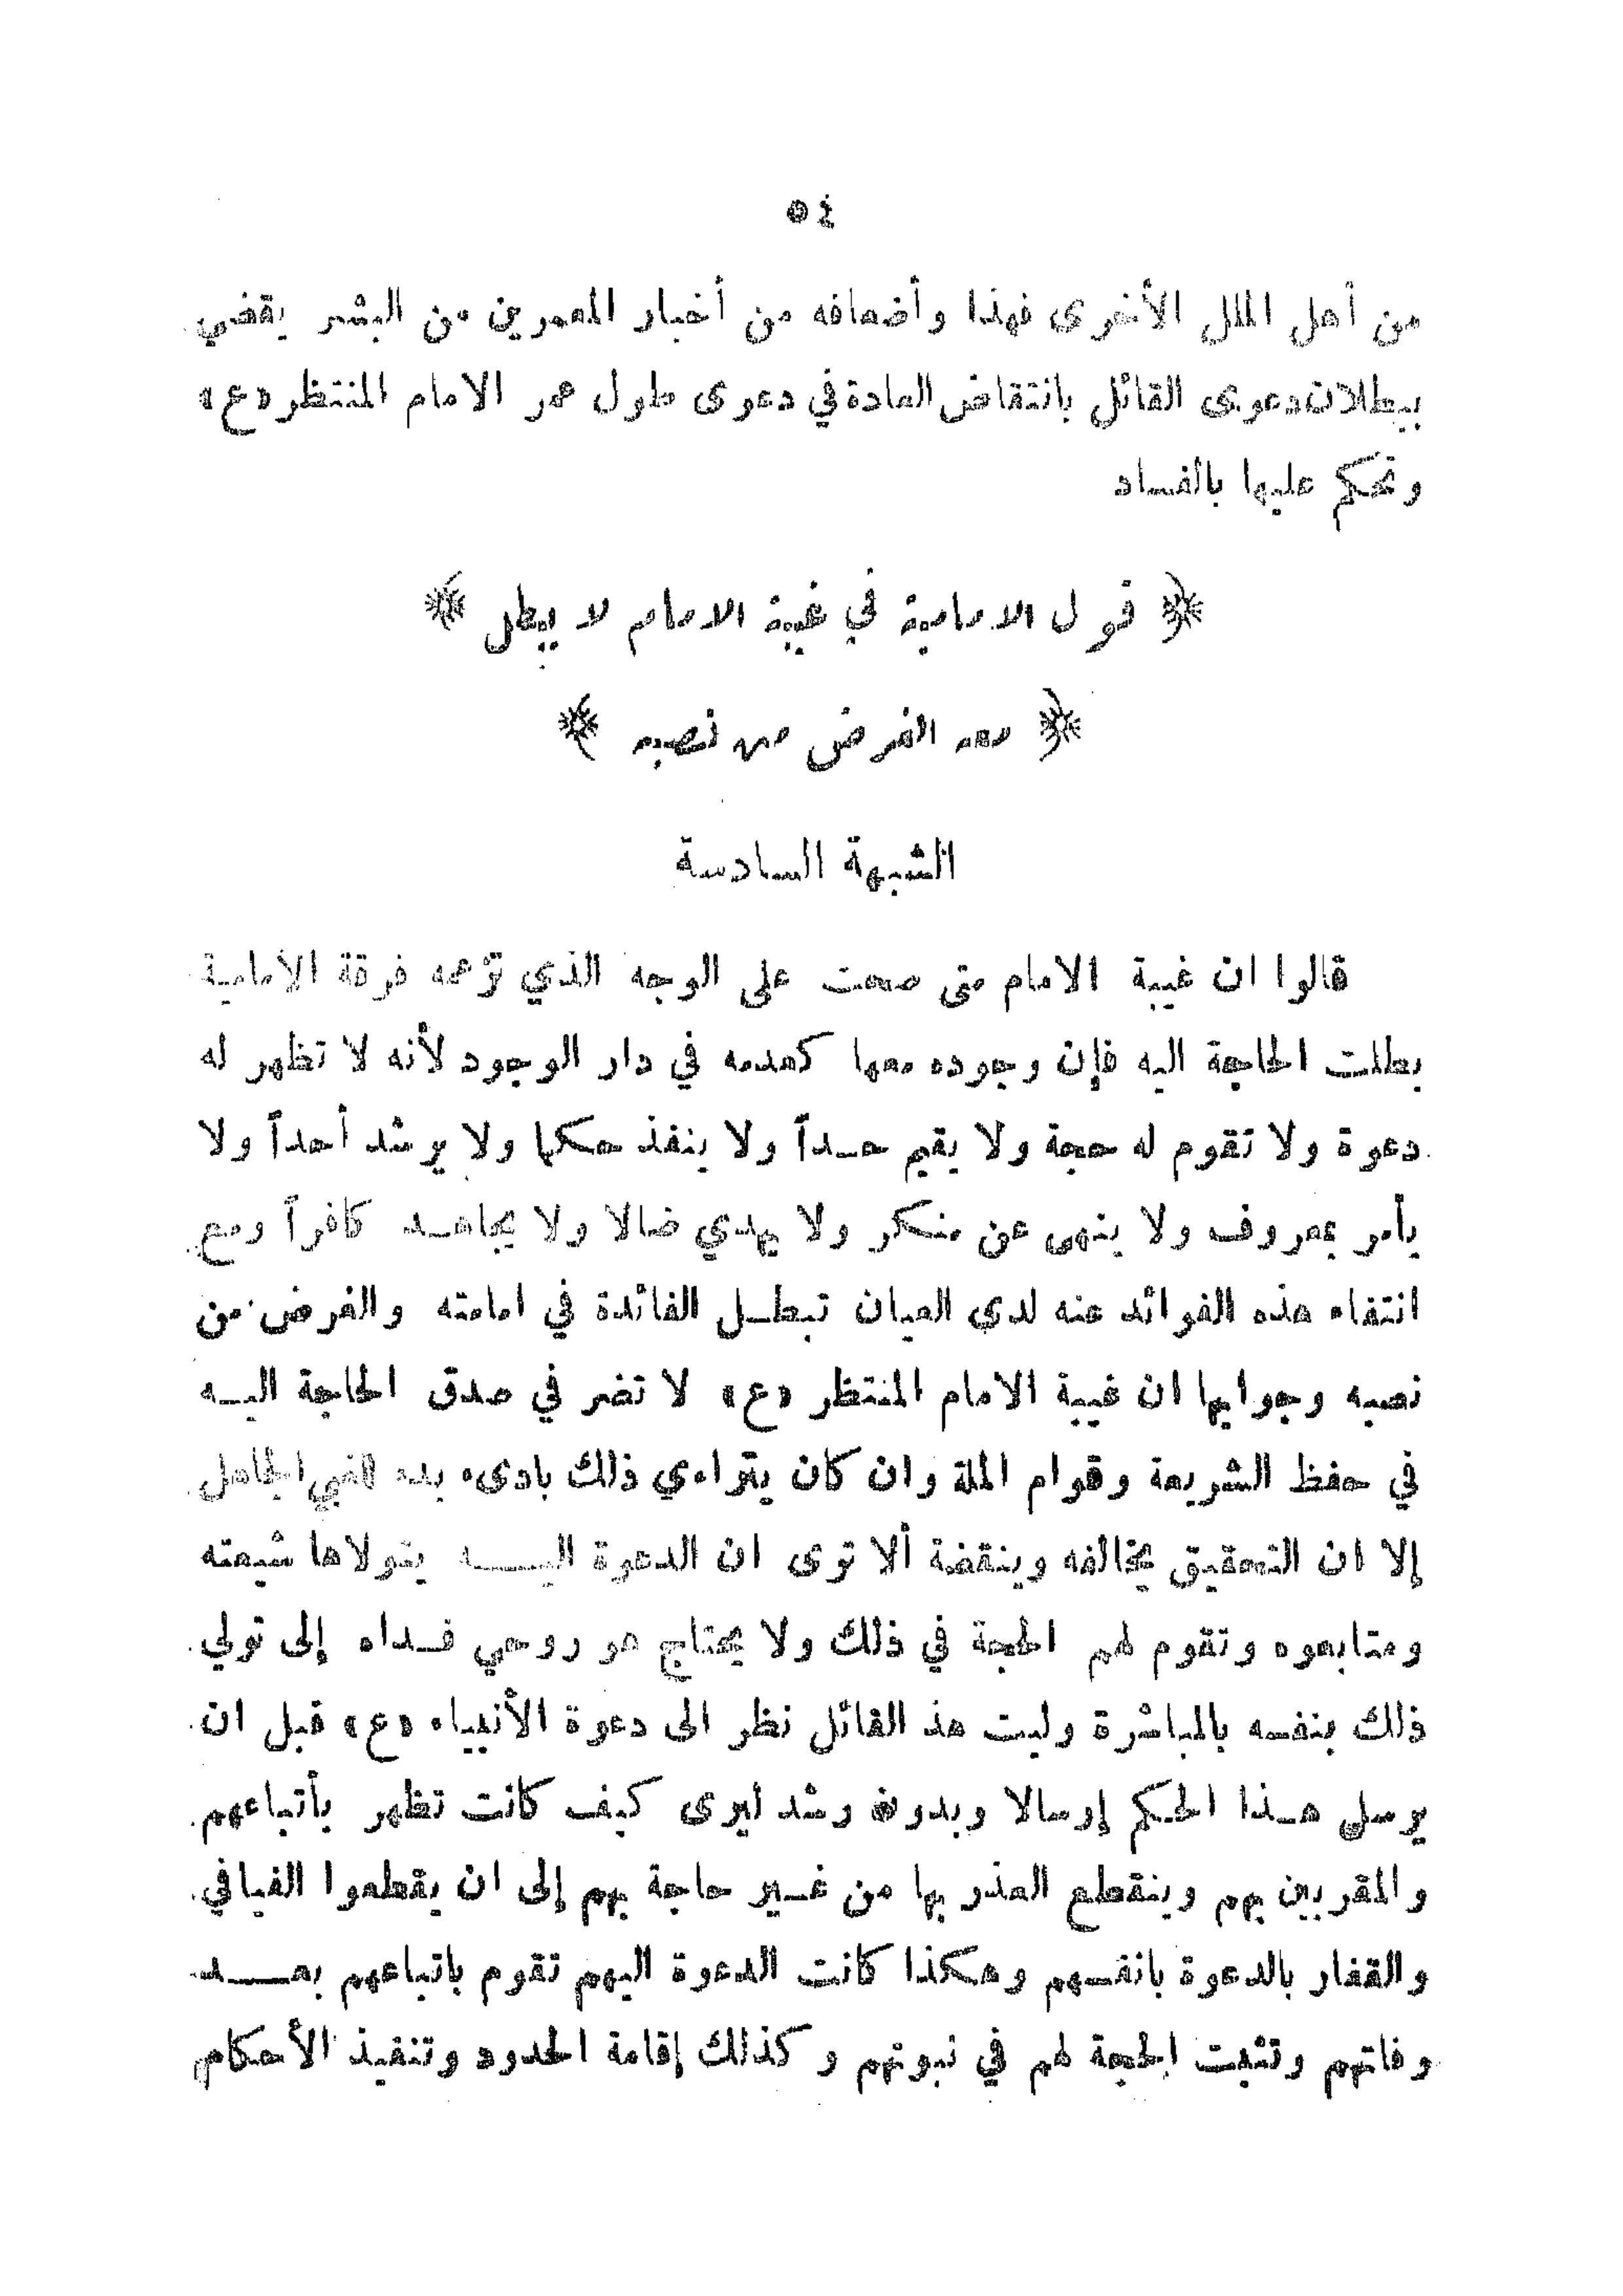 ٥٤
من أهل الملل الأخرى فهذا وأضعافه من أخبار المعمرين من البشر يقضي
ببطلان دعوى القائل بانتقاض العادة في دعوى طول عمر الامام المنتظر «ع»
وتحكم عليها بالفساد
﴿ قول الامامية في غيبة الامام لا يبطل ﴾
﴿ معه الغرض من نصبه ﴾
الشبهة السادسة
قالوا ان غيبة الامام متى صحت على الوجه الذي تزعمه فرقة الامامية
بطلت الحاجة اليه فإن وجوده معها كعدمه في دار الوجود لأنه لا تظهر له
دعوة ولا تقوم له حجة ولا يقيم حـداً ولا ينفذ حكما ولا يرشد أحداً ولا
يأمر بمعروف ولا ينهى عن منكر ولا يهدي ضالا ولا يجاهـد كافراً ومع
انتفاء هذه الفوائد عنه لدى العيان تبطـل الفائدة في امامته والغرض من
نصبه وجوابها ان غيبة الامام المنتظر «ع» لا تضر في صدق الحاجة اليـه
في حفظ الشريعة وقوام الملة وان كان يتراءي ذلك بادىء بدء للغبي الجاهل
إلا ان التحقيق يخالفه وينقضة ألا ترى ان الدعوة اليـــه يتولاها شيعته
ومتابعوه وتقوم لهم الحجة في ذلك ولا يحتاج هو روحي فـداه إلى تولي
ذلك بنفسه بالمباشرة وليت هذ القائل نظر الى دعوة الأنبياء «ع» قبل ان
يرسل هـذا الحكم إرسالا وبدون رشد ليرى كيف كانت تظهر بأتباعهم
والمقربين بهم وينقطع العذر بها من غـير حاجة بهم إلى ان يقطعوا الفيافي
والقفار بالدعوة بانفسهم وهكذا كانت الدعوة اليهم تقوم باتباعهم بعـــد
وفاتهم وتثبت الحجة لهم في نبوتهم وكذلك إقامة الحدود وتنفيذ الأحكام